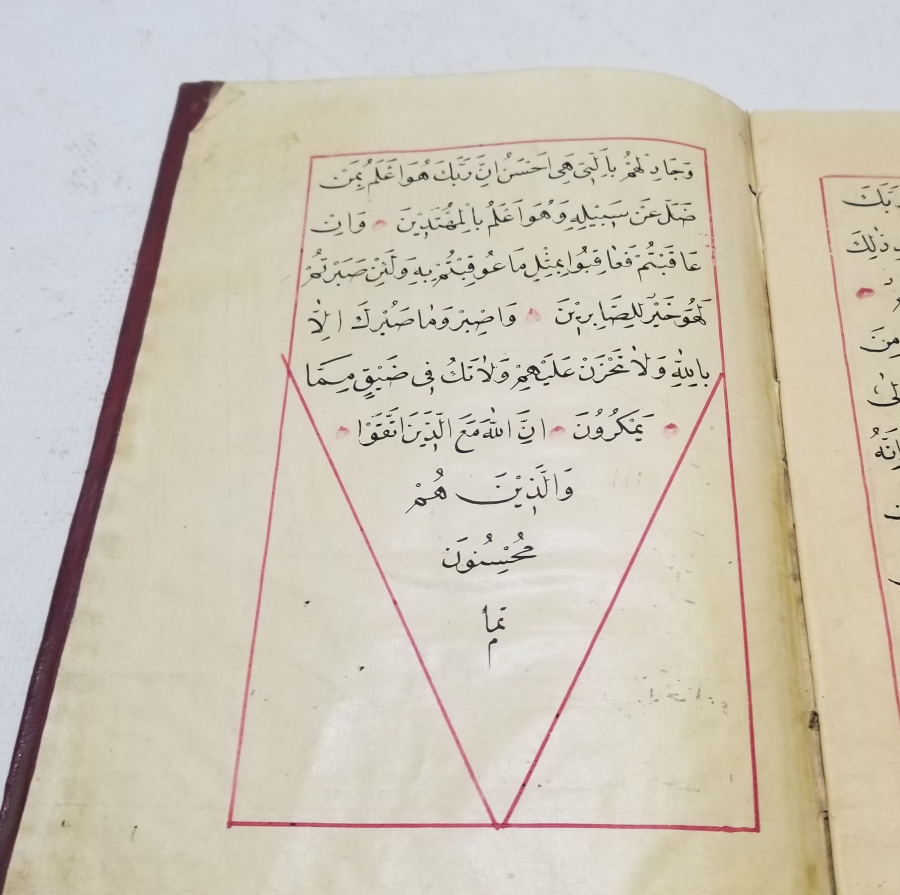 وَجَادِلْهُمْ بِالَّتِى هِىَ اَحْسَنُ اِنَّ رَبَّكَ هُوَ اَعْلَمُ بِمَنْ
ضَلَّ عَنْ سَبِيْلِهِ وَهُوَ اَعْلَمُ بِالْمُهْتَدِيْنَ وَاِنْ
عَاقَبْتُمْ فَعَاقِبُوا بِمِثْلِ مَا عُوقِبْتُمْ بِهِ وَلَئِنْ صَبَرْتُمْ
لَهُوَ خَيْرٌ لِلصَّابِرِيْنَ وَاصْبِرْ وَمَا صَبْرُكَ اِلَّا
بِاللّٰهِ وَلَا تَحْزَنْ عَلَيْهِمْ وَلَا تَكُ فِى ضَيْقٍ مِمَّا
يَمْكُرُونَ اِنَّ اللّٰهَ مَعَ الَّذِيْنَ اتَّقَوْا
وَالَّذِيْنَ هُمْ
مُحْسِنُونَ
رَبَّكَ
ذٰلِكَ
مِنَ